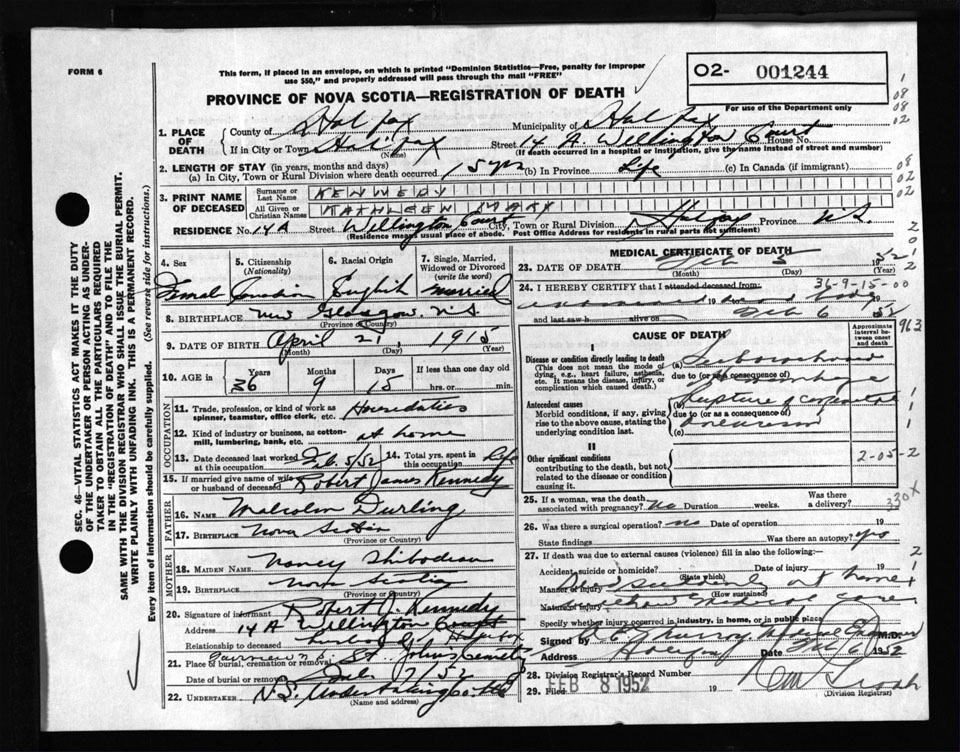 FORM 6
This form, if placed in an envelope, on which is printed "Dominion Statistics—Free, penalty for improper
use $50," and properly addressed will pass through the mail "FREE"
PROVINCE OF NOVA SCOTIA—REGISTRATION OF DEATH
02- 001244
For use of the Department only
1. PLACE OF DEATH
County of Halifax Municipality of Halifax
If in City or Town Halifax (Name) Street 14 A Wellington Court House No.
(If death occurred in a hospital or institution, give the name instead of street and number)
2. LENGTH OF STAY (in years, months and days)
(a) In City, Town or Rural Division where death occurred 15 yrs (b) In Province Life (c) In Canada (if immigrant)
3. PRINT NAME OF DECEASED
Surname or Last Name KENNEDY
All Given or Christian Names KATHLEEN MARY
RESIDENCE No. 14A Street Wellington Court City, Town or Rural Division Halifax Province N.S.
(Residence means usual place of abode. Post Office Address for residents in rural parts not sufficient)
4. Sex Female
5. Citizenship (Nationality) Canadian
6. Racial Origin English
7. Single, Married, Widowed or Divorced (write the word) married
8. BIRTHPLACE New Glasgow, N.S.
(Province or Country)
9. DATE OF BIRTH April 21, 1915
(Month) (Day) (Year)
10. AGE in Years Months Days If less than one day
36 9 15 hrs. or min.
OCCUPATION
11. Trade, profession, or kind of work as spinner, teamster, office clerk, etc. Housedaties
12. Kind of industry or business, as cotton-mill, lumbering, bank, etc. at home
13. Date deceased last worked at this occupation Feb. 5/52
14. Total yrs. spent in this occupation Life
15. If married give name of wife or husband of deceased Robert James Kennedy
FATHER
16. NAME Malcolm Durling
17. BIRTHPLACE Nova Scotia
(Province or Country)
MOTHER
18. MAIDEN NAME Nancy Thibodeau
19. BIRTHPLACE Nova Scotia
(Province or Country)
20. Signature of informant Robert J. Kennedy
Address 14 A Wellington Court Halifax
Relationship to deceased husband
21. Place of burial, cremation or removal Fairview St. John's Cemetery
Date of burial or removal Feb. 7/52 19
22. UNDERTAKER N.S. Undertaking Co. Ltd
(Name and address)
MEDICAL CERTIFICATE OF DEATH
23. DATE OF DEATH Feb 5 1952
(Month) (Day) (Year)
36-9-15-00
24. I HEREBY CERTIFY that I attended deceased from:
examined dead body
and last saw h alive on Feb 6 1952
CAUSE OF DEATH
Approximate interval between onset and death
963
I
Disease or condition directly leading to death
(This does not mean the mode of dying, e.g., heart failure, asthenia, etc. It means the disease, injury, or complication which caused death.)
(a) Subarachnoid
due to (or as a consequence of) Hemorrhage
Antecedent causes
Morbid conditions, if any, giving rise to the above cause, stating the underlying condition last.
(b) Rupture of congenital
due to (or as a consequence of)
(c) aneurism
II
Other significant conditions
contributing to the death, but not related to the disease or condition causing it.
2-05-2
25. If a woman, was the death associated with pregnancy? No Duration weeks. Was there a delivery?
330x
26. Was there a surgical operation? no Date of operation 19
State findings Was there an autopsy? yes
27. If death was due to external causes (violence) fill in also the following:—
Accident, suicide or homicide? (State which) Date of injury 19
Manner of injury Died suddenly at home
(How sustained)
Nature of injury without medical care
Specify whether injury occurred in industry, in home, or in public place
Signed by M.D.
Address Halifax Date Feb 6 1952
28. Division Registrar's Record Number
29. Filed FEB 8 1952 19
(Division Registrar)
SEC. 46—VITAL STATISTICS ACT MAKES IT THE DUTY
OF THE UNDERTAKER OR PERSON ACTING AS UNDER-
TAKER TO OBTAIN ALL THE PARTICULARS REQUIRED
IN THE "REGISTRATION OF DEATH" AND TO FILE THE
SAME WITH THE DIVISION REGISTRAR WHO SHALL ISSUE THE BURIAL PERMIT.
WRITE PLAINLY WITH UNFADING INK. THIS IS A PERMANENT RECORD.
Every item of information should be carefully supplied. (See reverse side for instructions.)